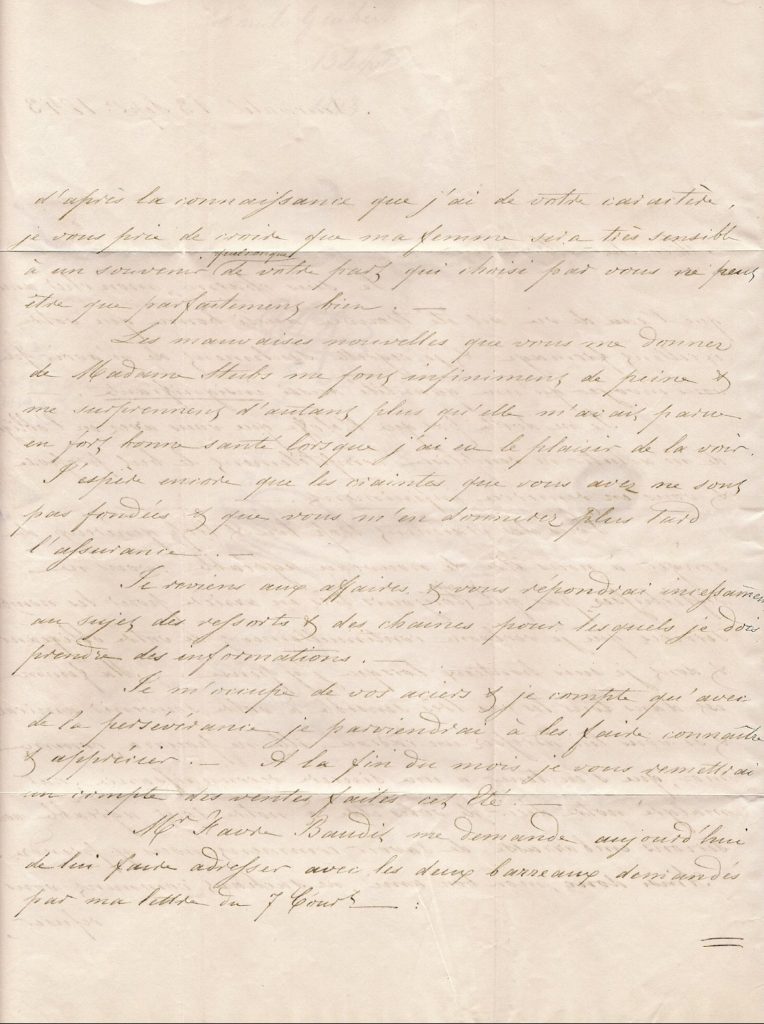 d'après la connaissance que j'ai de votre caractère,
je vous prie de croire que ma femme sera très sensible
à un souvenir quelconque de votre part, qui choisi par vous ne peut
être que parfaitement bien. —
Les mauvaises nouvelles que vous me donnez
de Madame Stubs me font infiniment de peine &
me surprennent d'autant plus qu'elle m'avait parue
en fort bonne santé lorsque j'ai eu le plaisir de la voir.
J'espère encore que les craintes que vous avez ne sont
pas fondées & que vous m'en donnerez plus tard
l'assurance. —
Je reviens aux affaires & vous répondrai incessamen
au sujet des ressorts & des chaines pour lesquels je dois
prendre des informations. —
Je m'occupe de vos aciers & je compte qu'avec
de la persevérance je parviendrai à les faire connaître
& apprécier. — A la fin du mois je vous remettrai
un compte des ventes faites cet Eté. —
Mr Favre Bandit me demande aujourd'hui
de lui faire adresser avec les deux barreaux demandés
par ma lettre du 7 Court :